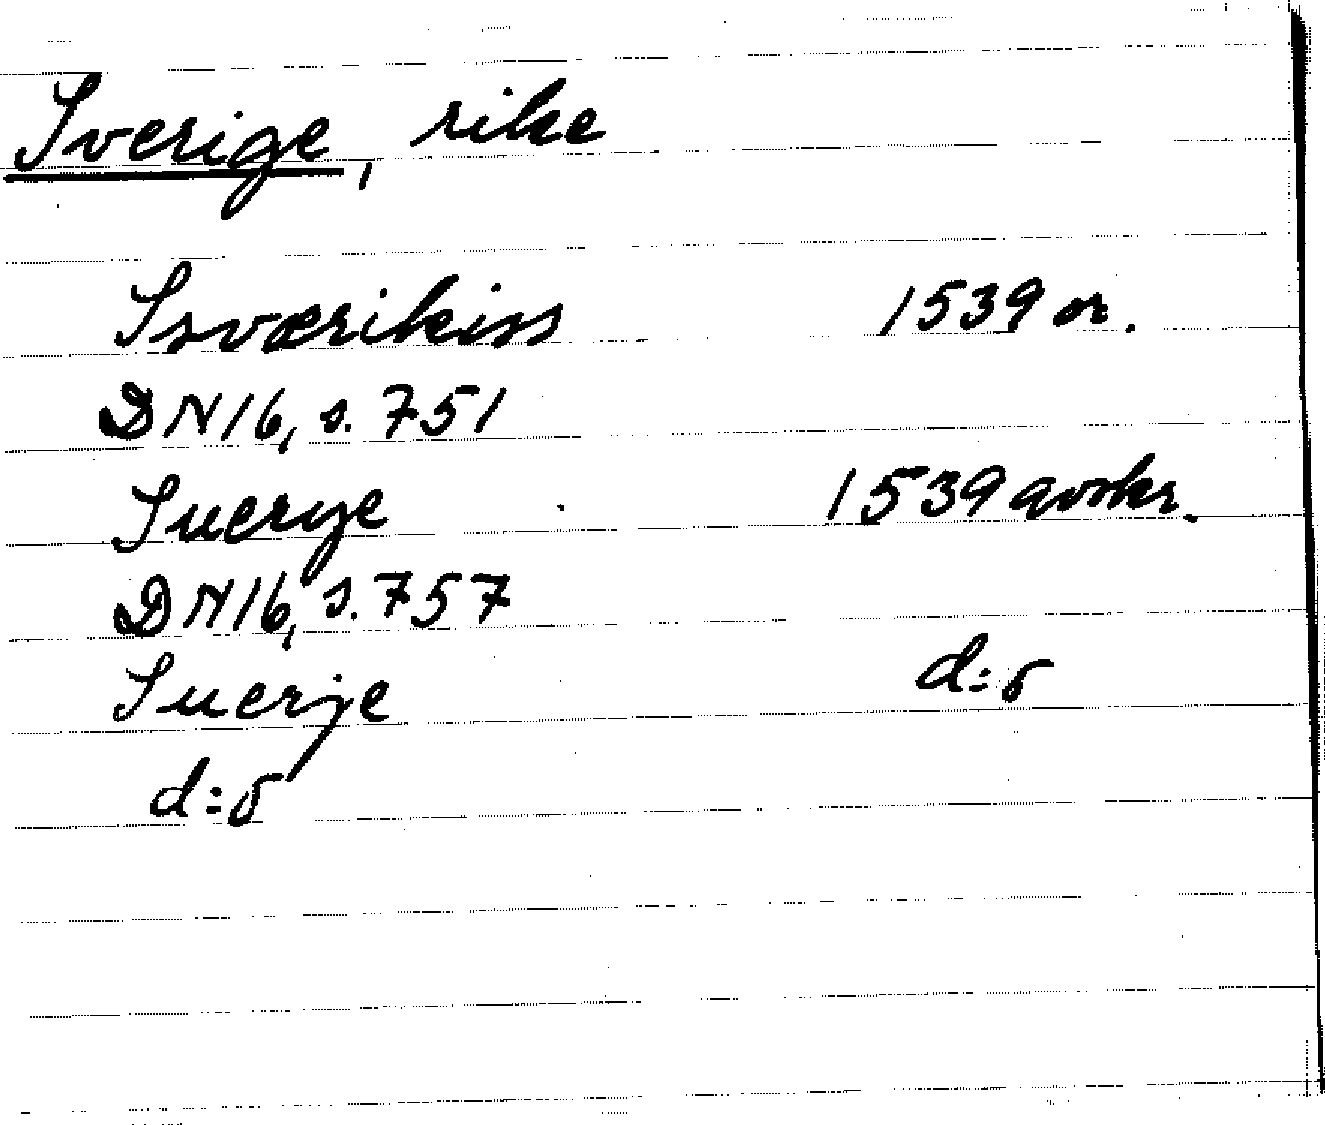 Sverige, rike
Ssværikiss 1539 or.
DN16, s. 751
Suerye 1539 avskr.
DN16, s. 757
Suerje d:o
d:o